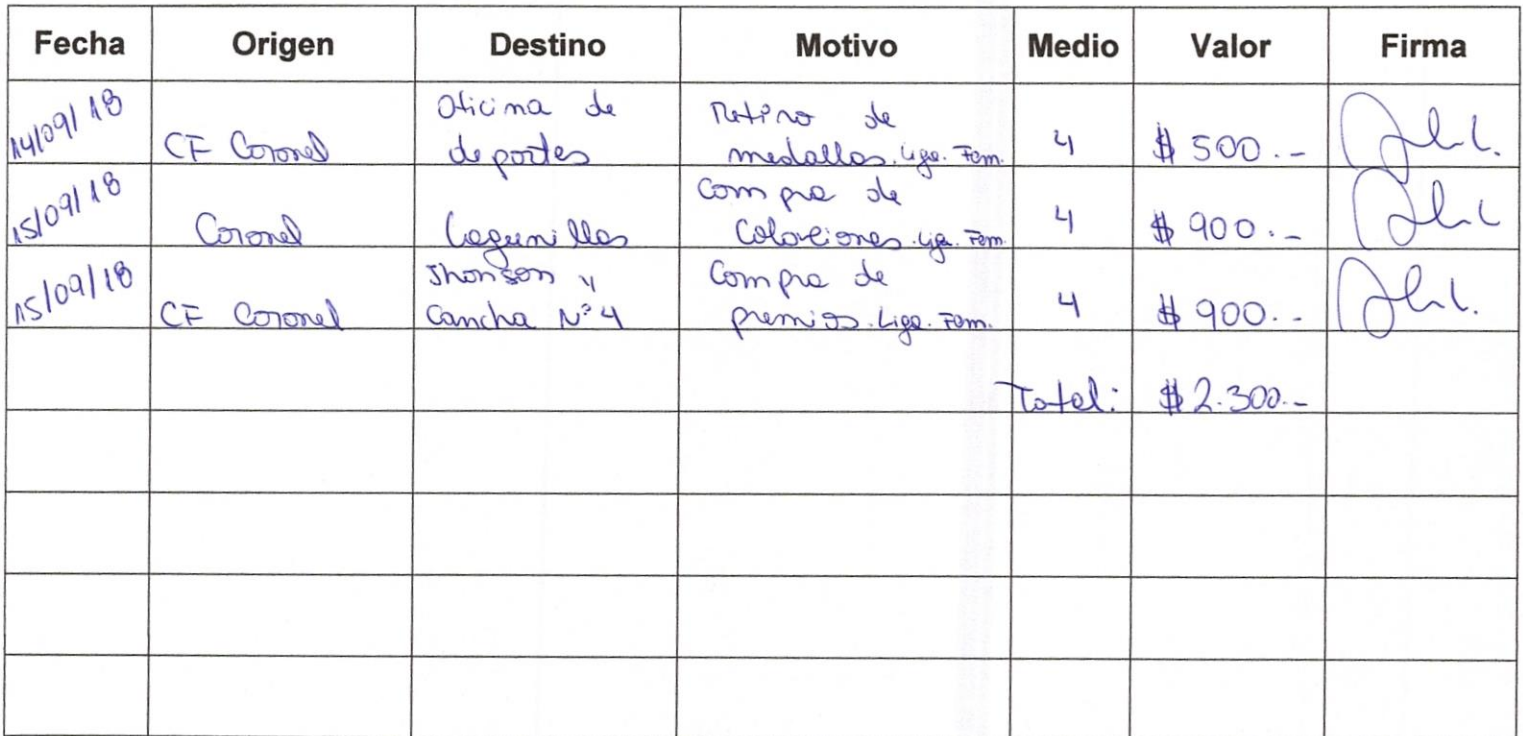 Fecha Origen Destino Motivo Medio Valor Firma
14/09/18 CF Coronel Oficina de deportes Retiro de medallas. Liga. Fem. 4 $ 500.-
15/09/18 Coronel Lagunillas Compra de Colaciones. Liga. Fem. 4 $ 900.-
15/09/18 CF Coronel Jhonson y Cancha N° 4 Compra de premios. Liga. Fem. 4 $ 900.-
Total: $ 2.300.-